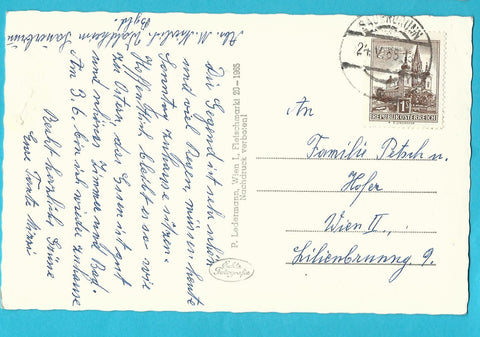 Abs. M. Walkheim Sauerbrunn
Bgld.
Die Gegend ist sehr schön
und viel Regen, müssen heute
Sonntag zuhause sitzen.
Hoffentlich bleibt es so wie
zu Ostern, das Essen ist gut
und schönes Zimmer und Bad.
Am 3.6. bin ich wieder zuhause
Recht herzliche Grüße
Eure Tante Mizzi
P. Ledermann, Wien I., Fleischmarkt 20 – 1965
Nachdruck verboten!
Echte
Fotografie
SAUERBRUNN
24.V.65
1 S
REPUBLIK ÖSTERREICH
An
Familie Petsch u.
Hofer
Wien II.,
Lilienbrunng. 9.